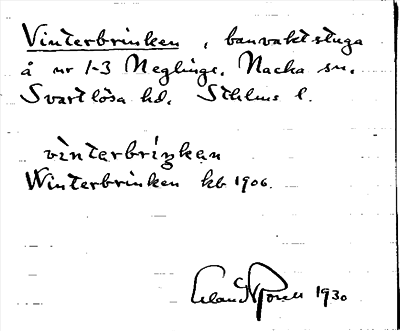 Vinterbrinken, banvaktstuga
å nr 1-3 Neglinge, Nacka sn.
Svartlösa hd. Sthlms l.
vìnterbriŋkan
Winterbrinken kb 1906.
1930